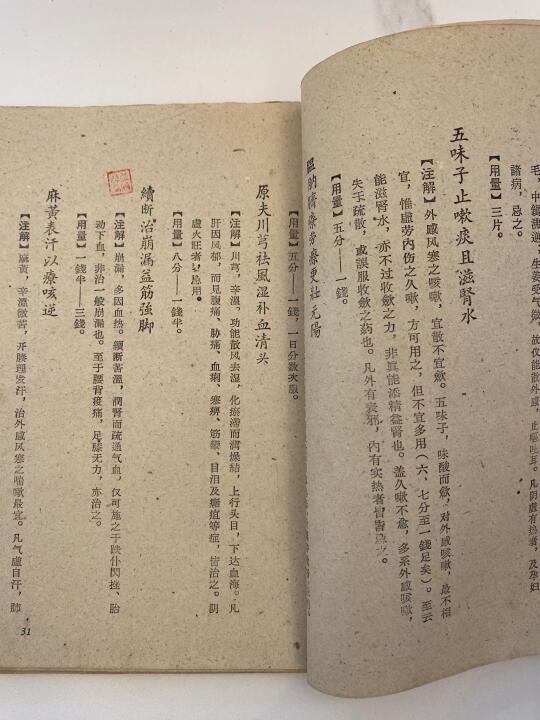 生姜受气微，故仅能散外感，止嘔吐耳。凡阴虛有热者，及孕妇
諸病，忌之。
【用量】三片。
五味子止嗽痰且滋腎水
【注解】外感风寒之咳嗽，宜散不宜歛。五味子，味酸而歛，对外感咳嗽，最不相
宜，惟虛劳内伤之久嗽，方可用之，但不宜多用（六、七分至一錢足矣）。至云
能滋腎水，亦不过收歛之力，非眞能添精益腎也。盖久嗽不愈，多系外感咳嗽，
失于疏散，或誤服收歛之药也。凡外有表邪，内有实热者皆忌之。
【用量】五分——一錢。
療劳瘵更壯元陽
【用量】五分——一錢，1日分数次服。
原夫川芎祛風湿补血清头
【注解】川芎，辛溫，功能散风去湿，化瘀滞而潤燥結，上行头目，下达血海。凡
肝因风郁，而见腹痛、胁痛、血痢、寒痹、筋攣、目泪及癰疽等症，皆治之。阴
虛火旺者，忌用。
【用量】八分——一錢半。
續断治崩漏益筋强脚
【注解】崩漏，多因血热。續断苦溫，潤腎而疏通气血，仅可施之于跌仆閃挫、胎
动下血，非治一般崩漏也。至于腰背痠痛，足膝无力，亦治之。
【用量】一錢半——三錢。
麻黃表汗以療咳逆
【注解】麻黃，辛溫微苦，开腠理发汗，治外感风寒之喘嗽最宜。凡气虛自汗，肺
31